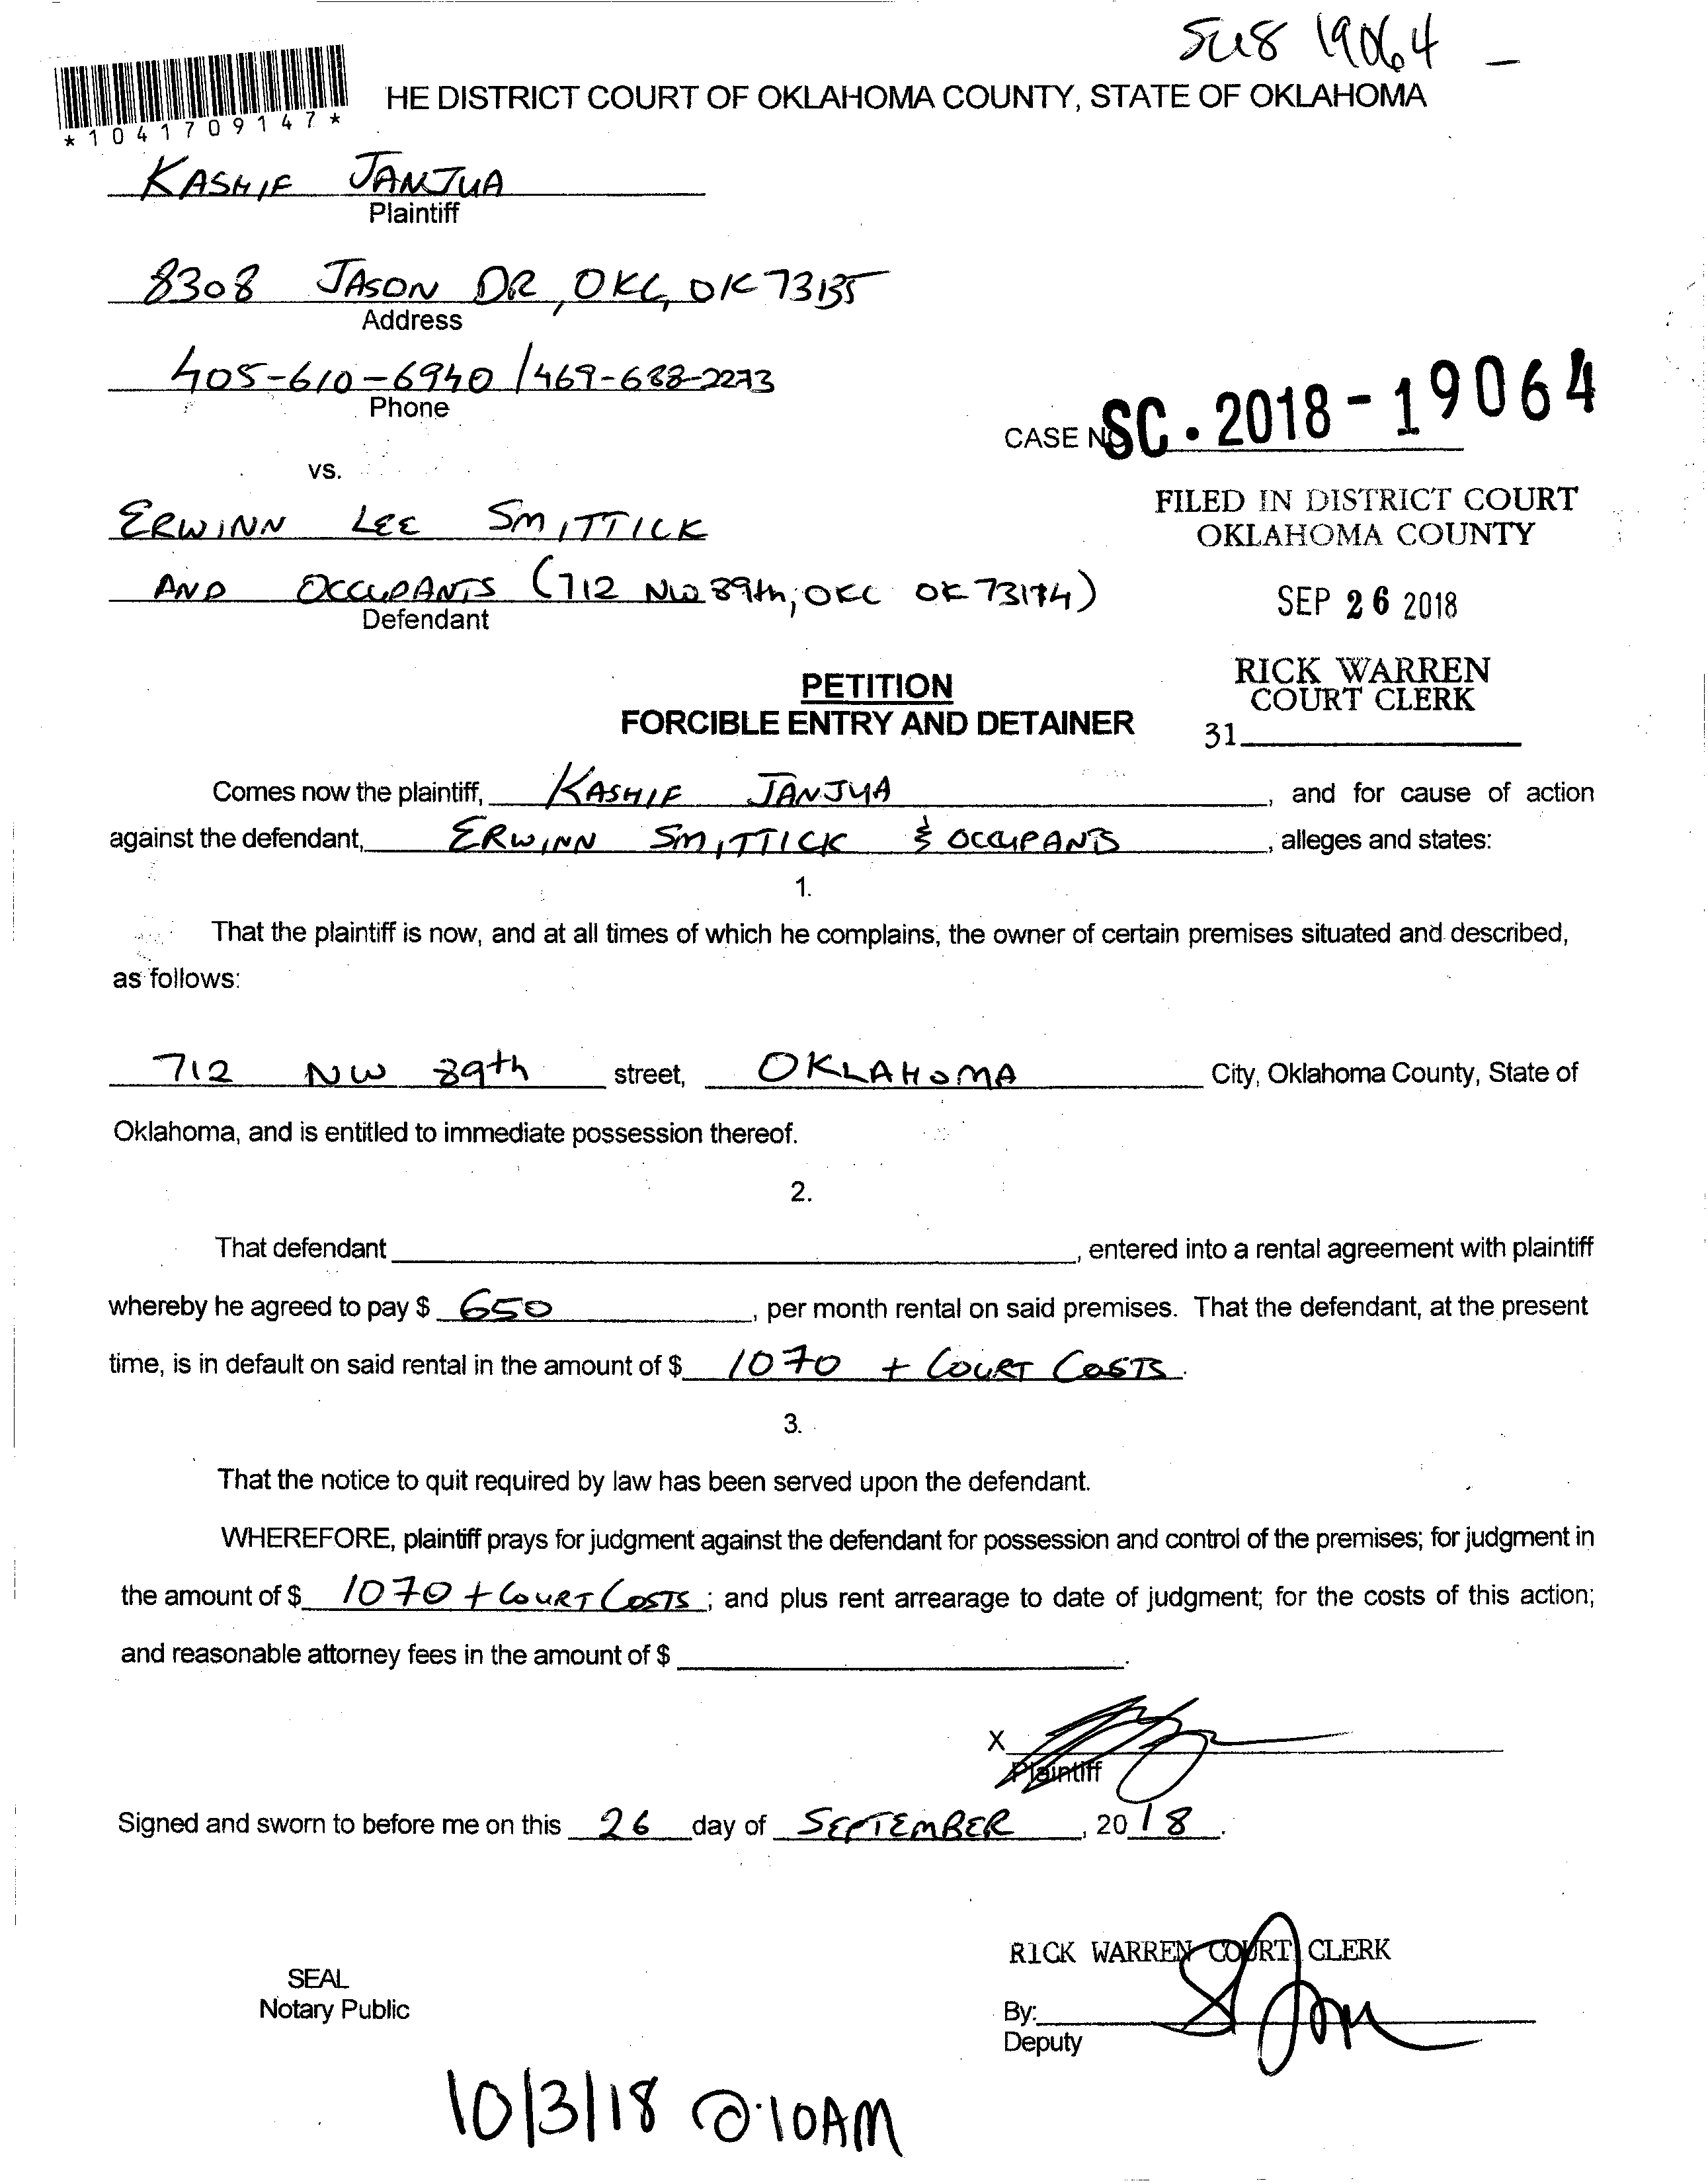 SC18 19064 -
*1041709147*
HE DISTRICT COURT OF OKLAHOMA COUNTY, STATE OF OKLAHOMA
KASHIF JANJUA
Plaintiff
8308 JASON DR, OKC, OK 73135
Address
405-610-6940 / 469-688-2273
Phone
CASE NO SC. 2018-19064
vs.
ERWINN LEE SMITTICK
AND OCCUPANTS (712 NW 89th, OKC OK
Defendant
FILED IN DISTRICT COURT
OKLAHOMA COUNTY
SEP 26 2018
RICK WARREN
COURT CLERK
31
PETITION
FORCIBLE ENTRY AND DETAINER
Comes now the plaintiff, KASHIF JANJUA, and for cause of action
against the defendant, ERWINN SMITTICK & OCCUPANTS, alleges and states:
1.
That the plaintiff is now, and at all times of which he complains, the owner of certain premises situated and described,
as follows:
712 NW 89th street, OKLAHOMA City, Oklahoma County, State of
Oklahoma, and is entitled to immediate possession thereof.
2.
That defendant, entered into a rental agreement with plaintiff
whereby he agreed to pay $ 650, per month rental on said premises. That the defendant, at the present
time, is in default on said rental in the amount of $ 1070 + COURT COSTS.
3.
That the notice to quit required by law has been served upon the defendant.
WHEREFORE, plaintiff prays for judgment against the defendant for possession and control of the premises; for judgment in
the amount of $ 1070 + COURT COSTS; and plus rent arrearage to date of judgment; for the costs of this action;
and reasonable attorney fees in the amount of $ .
X
Plaintiff
Signed and sworn to before me on this 26 day of SEPTEMBER, 2018.
RICK WARREN COURT CLERK
SEAL
Notary Public
By:
Deputy
10/3/18 @ 10AM